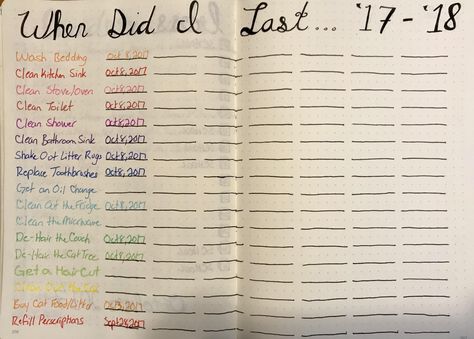 When Did I Last... '17-'18
Wash Bedding Oct 8, 2017
Clean Kitchen Sink Oct 8, 2017
Clean Stove/Oven Oct 8, 2017
Clean Toilet Oct 8, 2017
Clean Shower Oct 8, 2017
Clean Bathroom Sink Oct 8, 2017
Shake Out Litter Rugs Oct 8, 2017
Replace Toothbrushes Oct 8, 2017
Get an Oil Change
Clean Out the Fridge Oct 8, 2017
Clean the Microwave
De-Hair the Couch Oct 8, 2017
De-Hair the Cat Tree Oct 8, 2017
Get a Hair Cut
Buy Cat Food/Litter Oct 3, 2017
Refill Perscriptions Sept 28, 2017